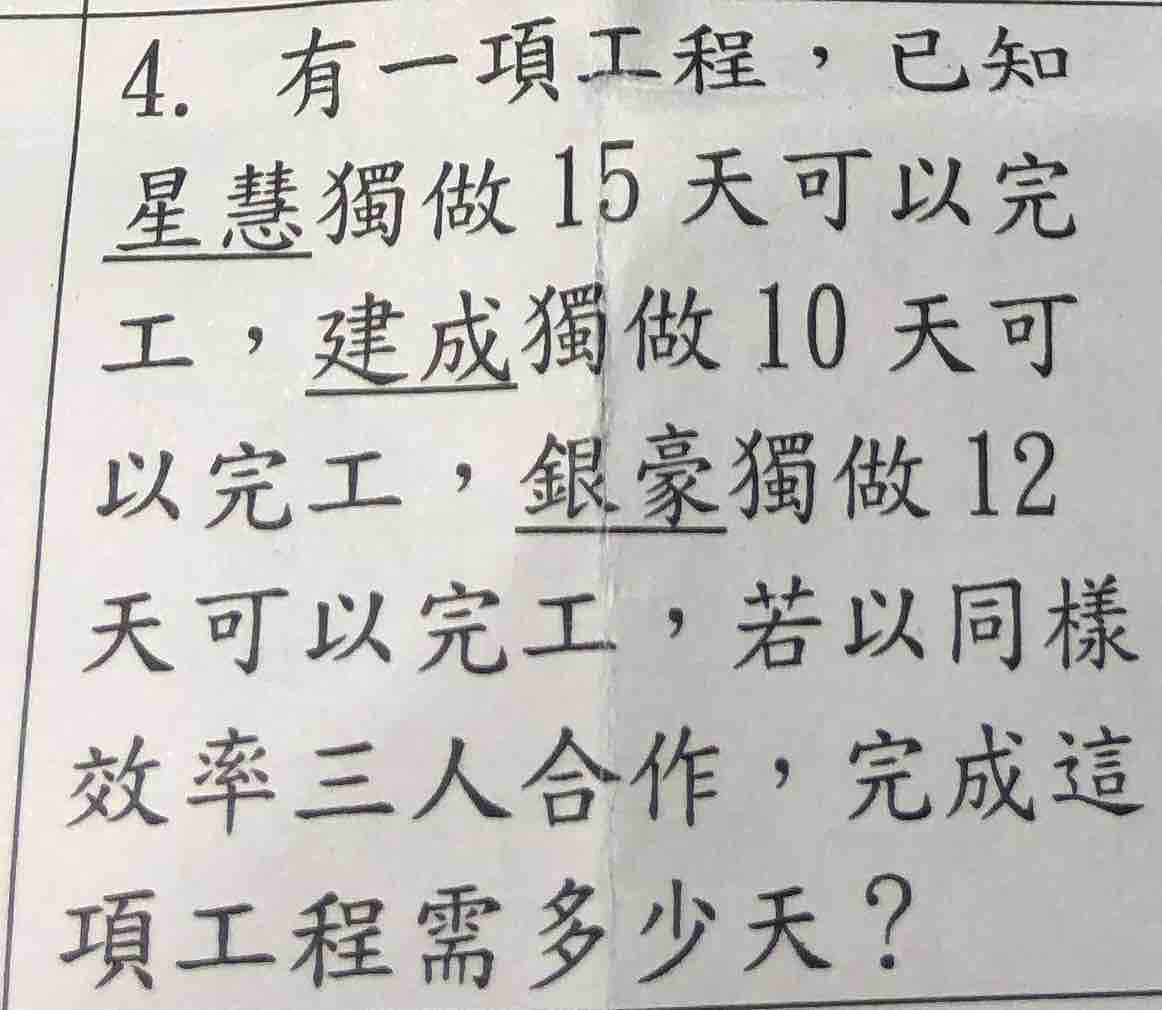 4. 有一項工程，已知
星慧獨做 15 天可以完
工，建成獨做 10 天可
以完工，銀豪獨做 12
天可以完工，若以同樣
效率三人合作，完成這
項工程需多少天？